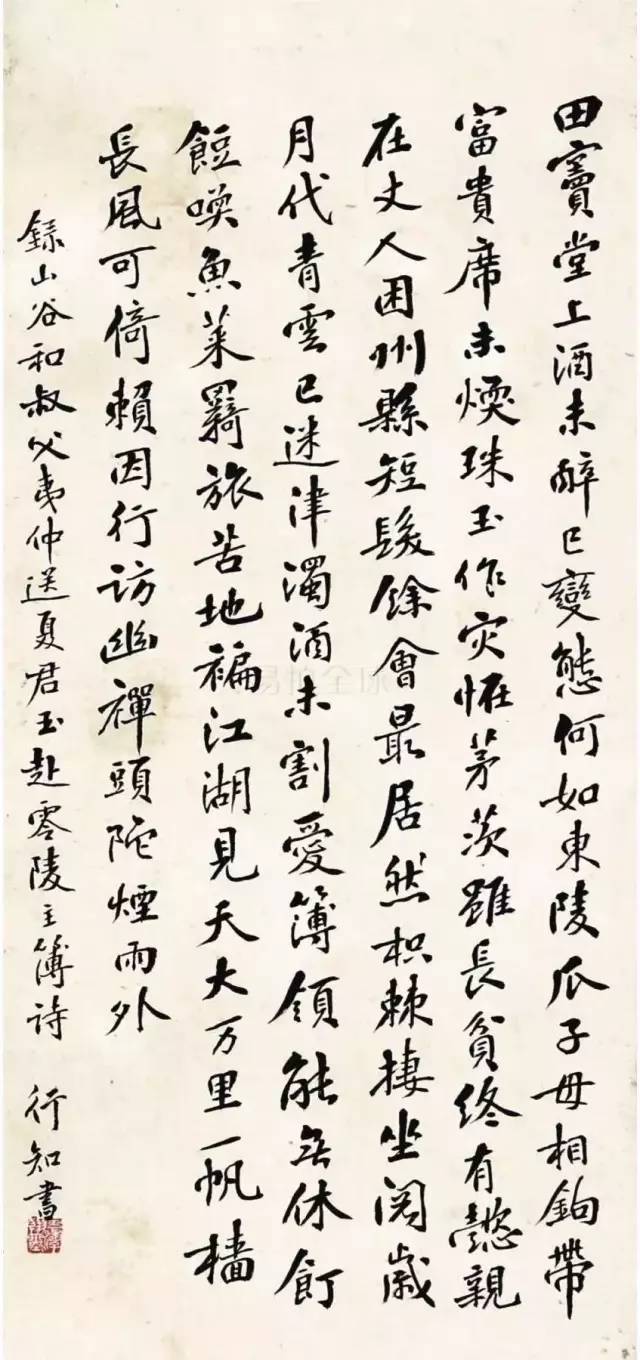 田竇堂上酒未醉已變態何如東陵瓜子母相鉤帶
富貴席未煖珠玉作灾怪茅茨雖長貧終有懿親
在丈人困州縣短髮餘會最居然枳棘棲坐閱歲
月代青雲已迷津濁酒未割愛簿領能無休飣
餖喚魚菜羇旅苦地褊江湖見天大万里一帆檣
長風可倚賴因行訪幽禪頭陀煙雨外
錄山谷和叔父夷仲送夏君玉赴零陵主簿詩 行知書
易拍全球